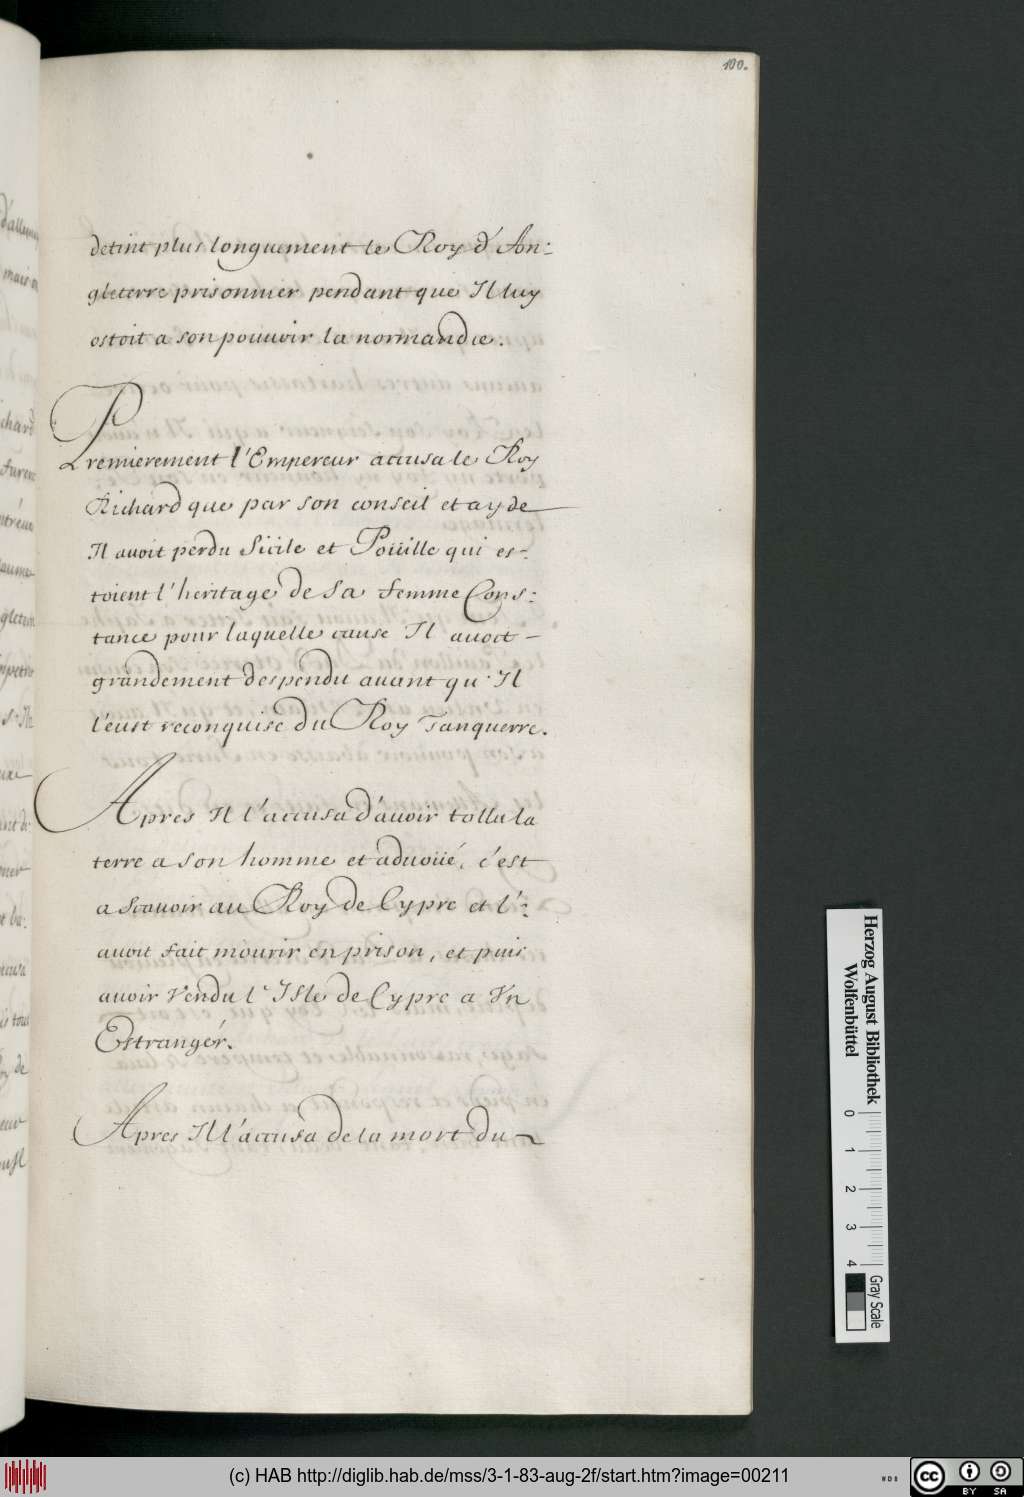 100.
detint plus longuement le Roy d'An:
gleterre prisonnier pendant que Il luy
ostoit a son pouuoir la normandie.
Premierement l'Empereur accusa le Roy
Richard que par son conseil et ayde
Il auoit perdu Sicile et Poüille qui es:
toient l'heritage de sa femme Cons:
tance pour laquelle cause Il auoit -
grandement despendu auant qu'Il
l'eust reconquise du Roy Tanquerre.
Apres Il l'accusa d'auoir tollu la
terre a son homme et aduoüé, c'est
a scauoir au Roy de Cypre et l':
auoit fait mourir en prison, et puis
auoir vendu l'Isle de Cypre a Vn
Estranger.
Apres Il l'accusa de la mort du
Herzog August Bibliothek
Wolfenbüttel
0 1 2 3 4
Gray Scale
(c) HAB http://diglib.hab.de/mss/3-1-83-aug-2f/start.htm?image=00211
WDB
cc BY SA